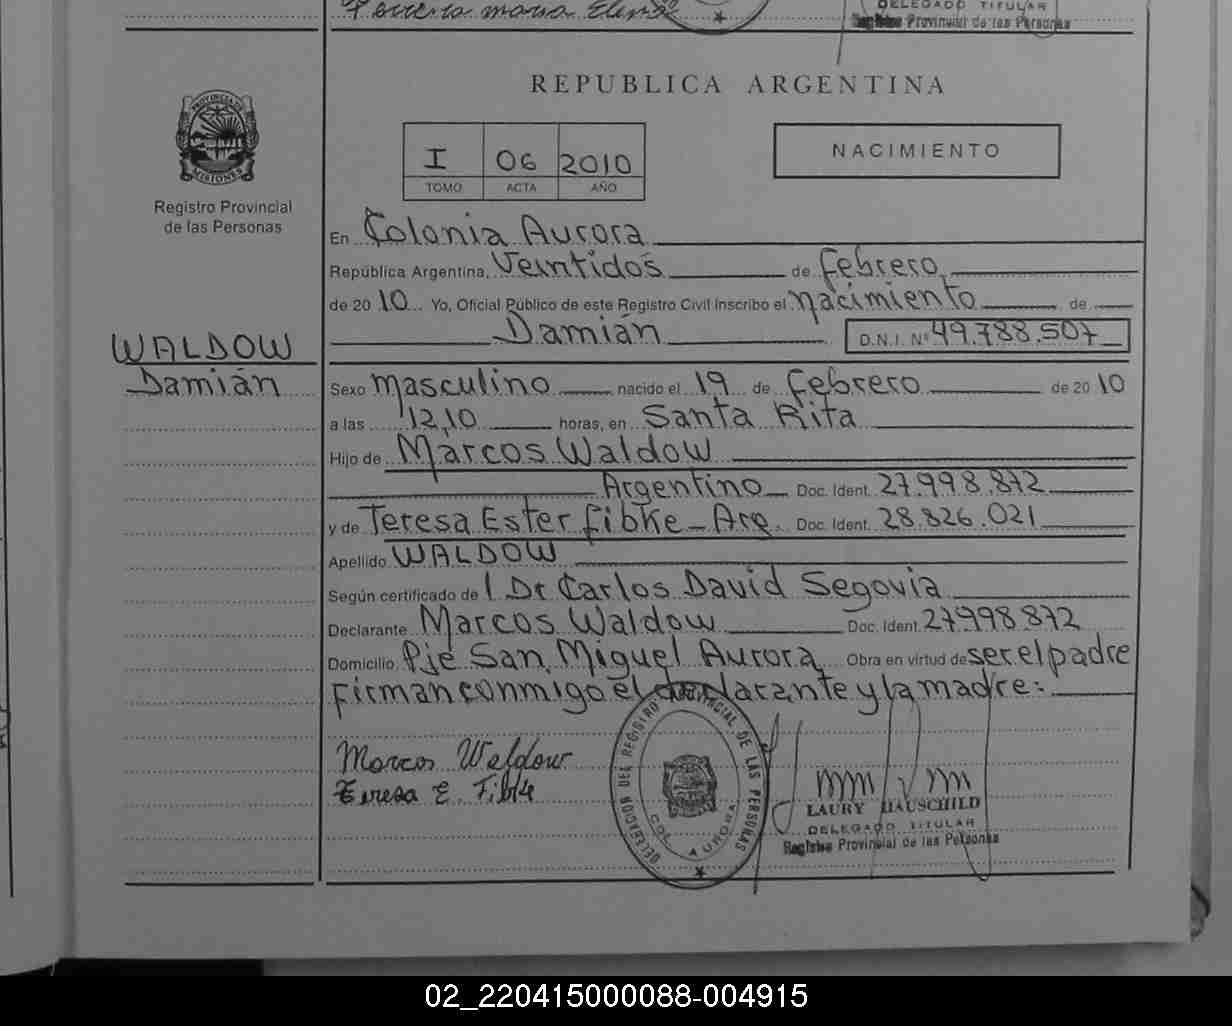 Ferreira maria Elena
DELEGADO TITULAR
Registro Provincial de las Personas
REPUBLICA ARGENTINA
PROVINCIA DE
MISIONES
Registro Provincial
de las Personas
I 06 2010
TOMO ACTA AÑO
NACIMIENTO
En Colonia Aurora
República Argentina, Veintidos de febrero
de 2010 Yo, Oficial Público de este Registro Civil inscribo el nacimiento de
Damián D.N.I. Nº 49.788.507
WALDOW
Damián
Sexo masculino nacido el 19 de febrero de 2010
a las 12,10 horas, en Santa Rita
Hijo de Marcos Waldow
Argentino Doc. Ident. 27.998.872
y de Teresa Ester Fibke - Arg. Doc. Ident. 28.826.021
Apellido WALDOW
Según certificado de Dr Carlos David Segovia
Declarante Marcos Waldow Doc. Ident. 27998.872
Domicilio Pje San Miguel Aurora Obra en virtud de ser el padre
firman conmigo el declarante y la madre:
Marcos Waldow
Teresa E. Fibke
DELEGACION DEL REGISTRO PROVINCIAL DE LAS PERSONAS
COL. AURORA
LAURY HAUSCHILD
DELEGADO TITULAR
Registro Provincial de las Personas
02_220415000088-004915